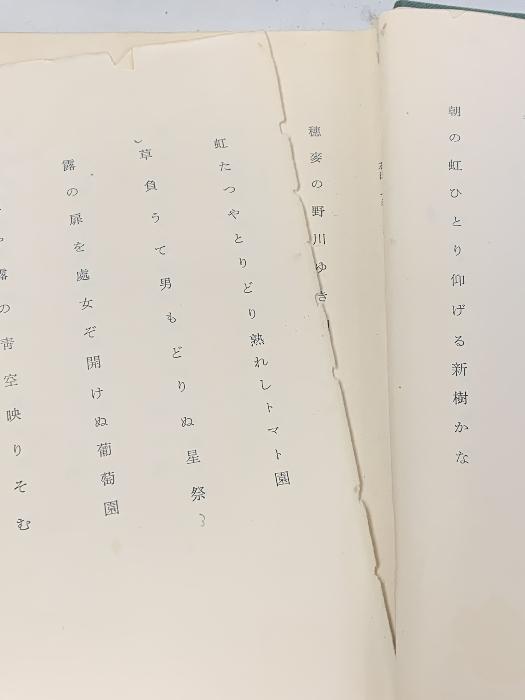 朝の虹ひとり仰げる新樹かな
穂麥の野川ゆき
虹たつやとりどり熟れしトマト園
草負うて男もどりぬ星祭
3
露の扉を處女ぞ開けぬ葡萄園
露の靑空映りそむ